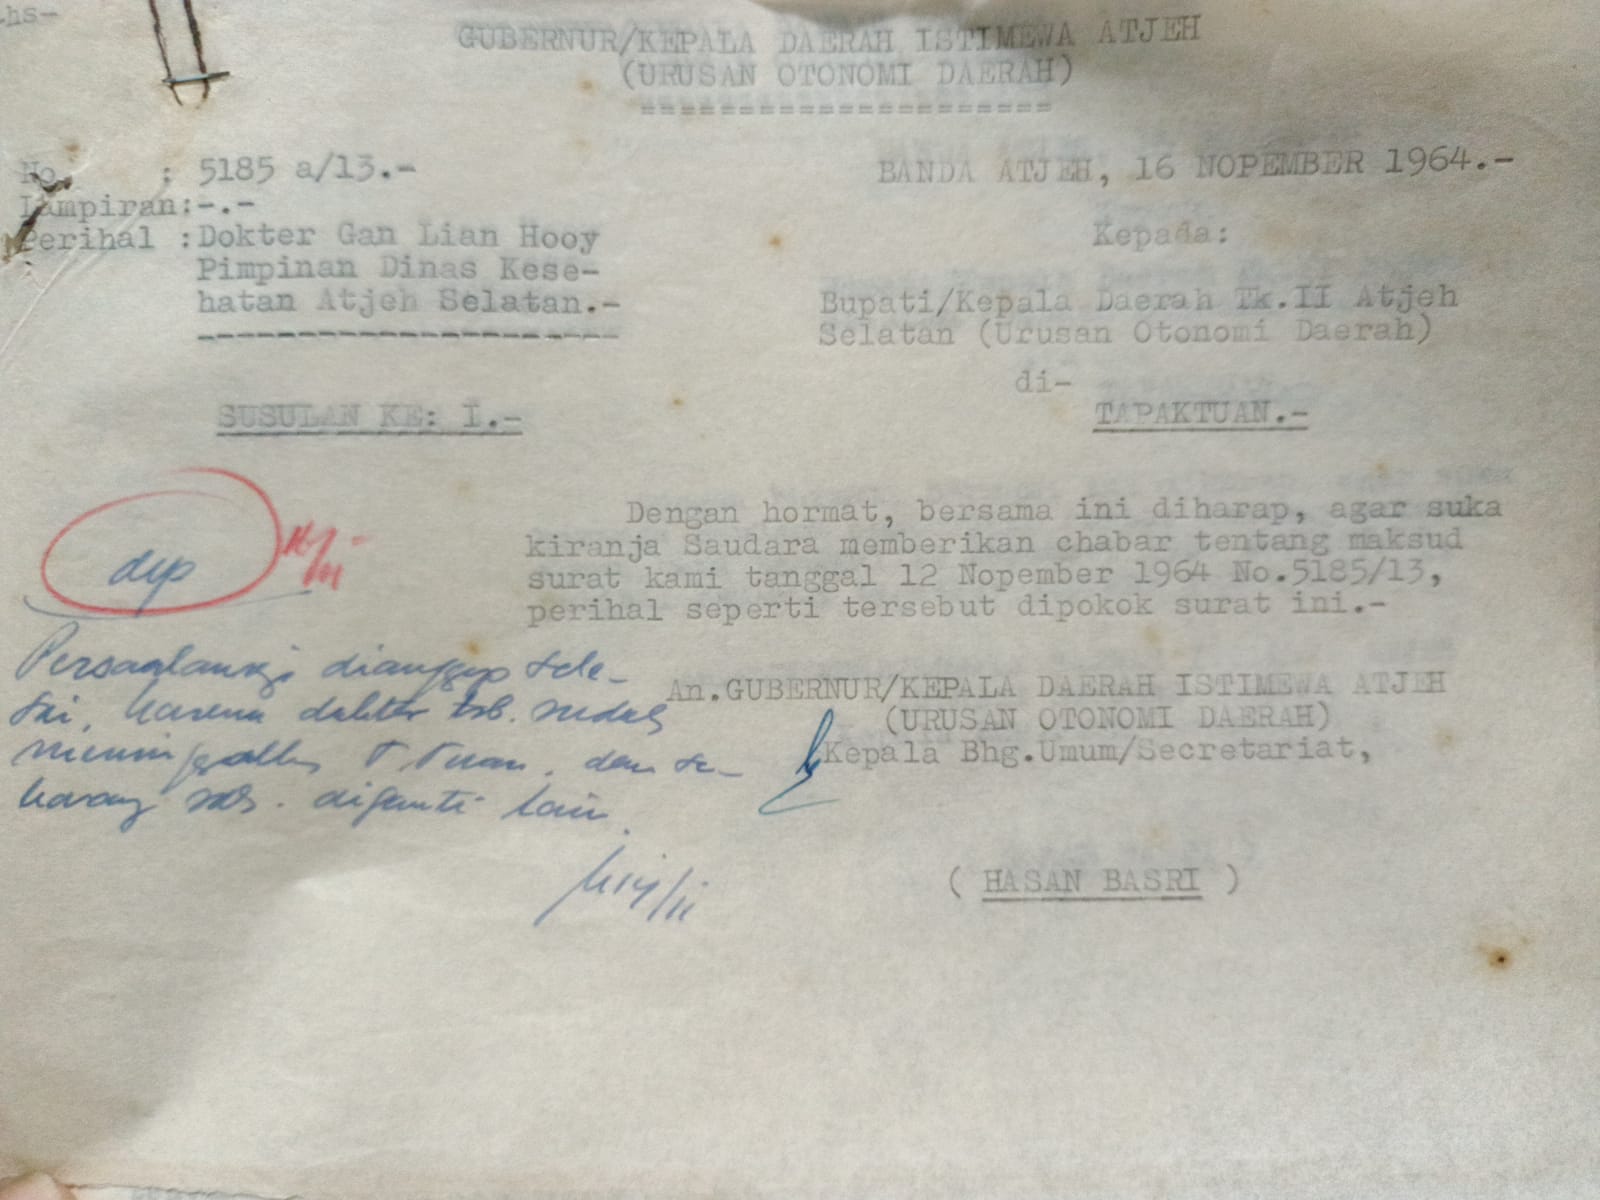 -hs-
GUBERNUR/KEPALA DAERAH ISTIMEWA ATJEH
(URUSAN OTONOMI DAERAH)
=====================
No. : 5185 a/13.-
Lampiran:-.-
Perihal :Dokter Gan Lian Hooy
Pimpinan Dinas Kese-
hatan Atjeh Selatan.-
---------------------
SUSULAN KE: I.-
BANDA ATJEH, 16 NOPEMBER 1964.-
Kepada:
Bupati/Kepala Daerah Tk.II Atjeh
Selatan (Urusan Otonomi Daerah)
di-
TAPAKTUAN.-
Dengan hormat, bersama ini diharap, agar suka
kiranja Saudara memberikan chabar tentang maksud
surat kami tanggal 12 Nopember 1964 No.5185/13,
perihal seperti tersebut dipokok surat ini.-
An.GUBERNUR/KEPALA DAERAH ISTIMEWA ATJEH
(URUSAN OTONOMI DAERAH)
Kepala Bhg.Umum/Secretariat,
( HASAN BASRI )
dep
Persoalannja dianggap sele-
sai, karena dokter tsb. sudah
meninggalkan T. Tuan, dan se-
karang sdh. diganti lain.